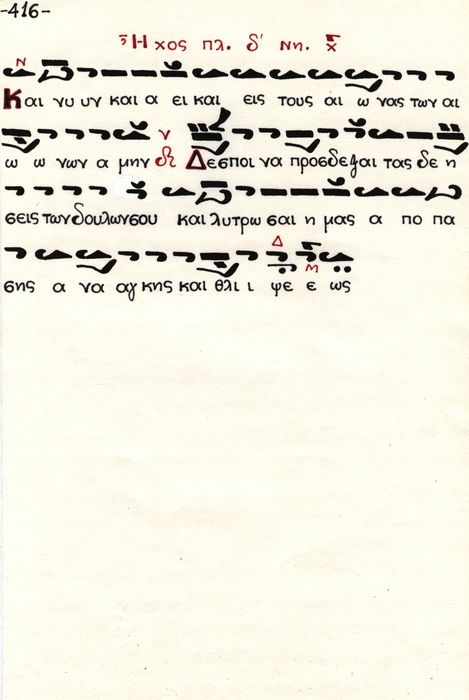 -416-
Ἦχος πλ. δ' Νη. χ
Ν
Και νυ υν και α ει και εις τους αι ω νας των αι
ω ω νων α μην Δεσποι να προσδεξαι τας δε η
σεις των δουλων σου και λυτρω σαι η μας α πο πα
Δ
Μ
σης α να αγ κης και θλι ι ψε ε ως